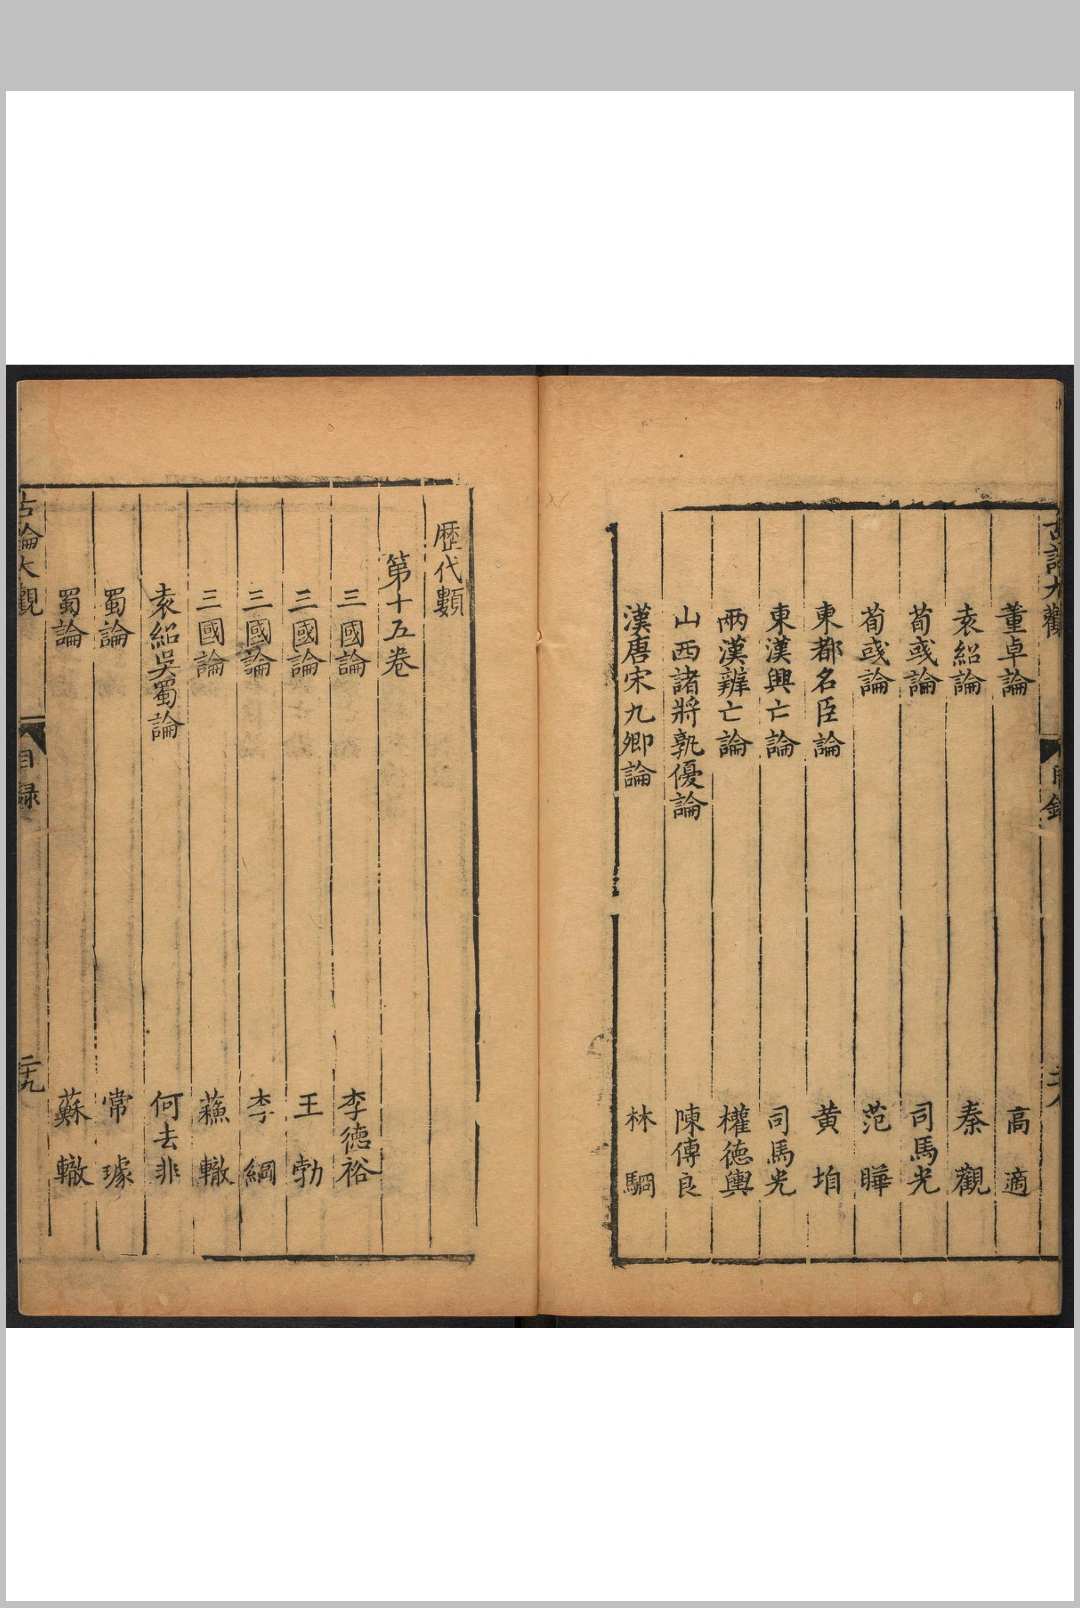 董卓論 高適
袁紹論 秦觀
荀彧論 司馬光
荀彧論 范曄
東都名臣論 黄㙈
東漢興亡論 司馬光
兩漢辨亡論 權德輿
山西諸將孰優論 陳傅良
漢唐宋九卿論 林駧
歷代數
第十五卷
三國論 李德裕
三國論 王勃
三國論 李綱
三國論 蘇轍
袁紹吳蜀論 何去非
蜀論 常璩
蜀論 蘇轍
古論大觀 目録 二十九